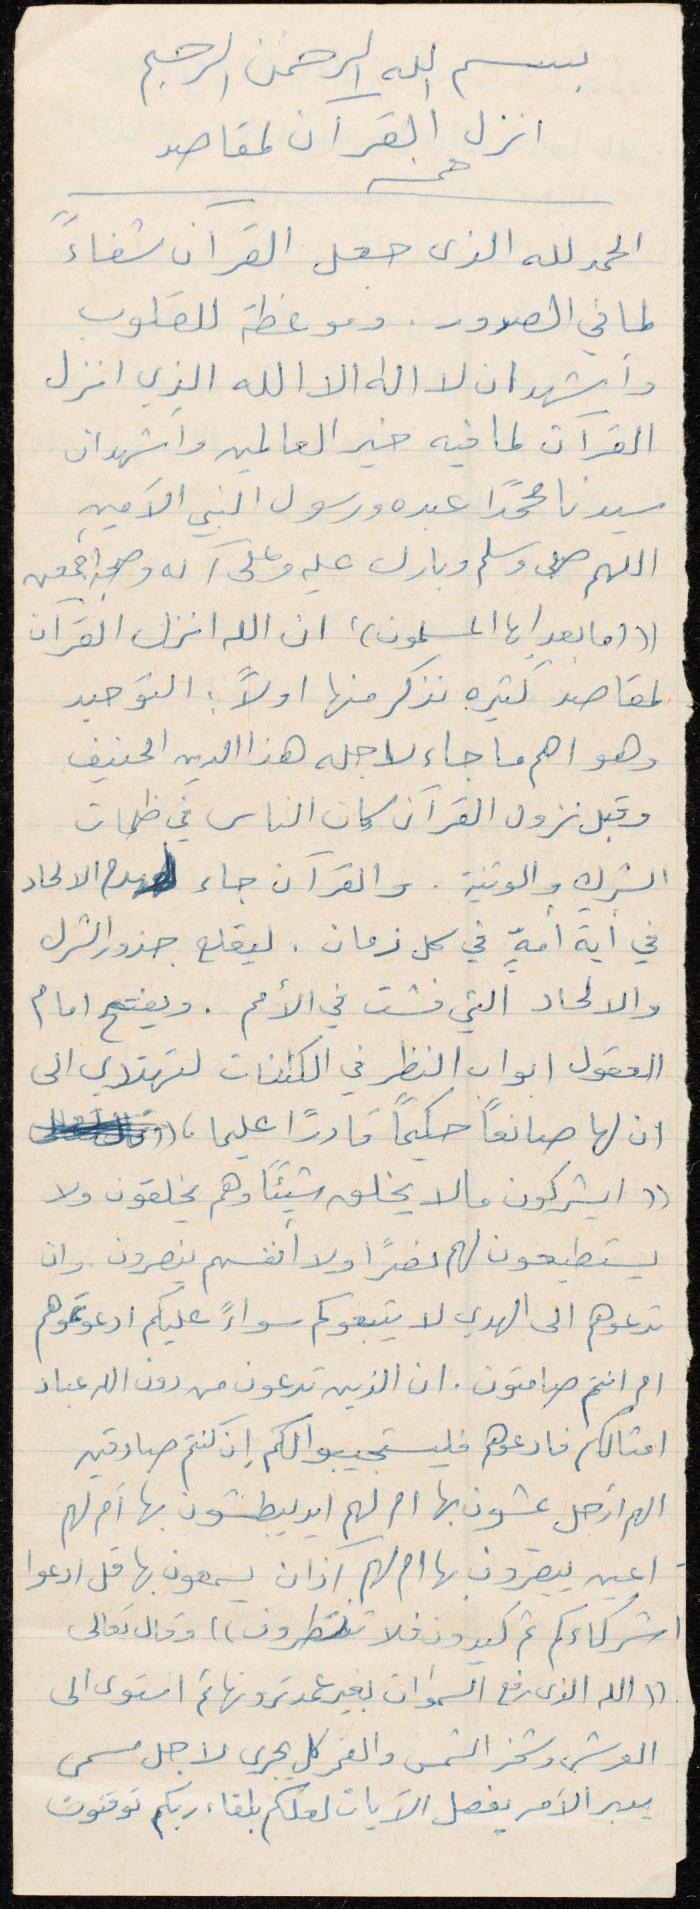 بسم الله الرحمن الرحيم
انزل القرآن لمقاصد
همـــة
الحمد لله الذى جعل القرآن شفاءً
لما في الصدور . وموعظة للقلوب
وأشهد ان لا اله الا الله الذي انزل
القرآن لما فيه خير العالمين واشهد ان
سيدنا محمدًا عبده ورسول النبي الأمين
اللهم صل وسلم وبارك عليه وعلى آله وصحبه أجمعين
((اما بعد ايها المسلمون)) ان الله انزل القرآن
لمقاصد كثيره نذكر منها اولاً : التوحيد
وهو اهم ما جاء لاجله هذا الدين الحنيف
وقبل نزول القرآن كان الناس في ظلمات
الشرك والوثنية . والقرآن جاء ليهدم الالحاد
في أية أمةٍ في كل زمان . ليقلع جذور الشرك
والالحاد التي فشت في الأمم . ويفتح امام
العقول ابواب النظر في الكائنات لتهتدي الى
ان لها صانعاً حكيماً قادرًا عليما ،
(( ايشركون مالا يخلق شيئًا وهم يخلقون ولا
يستطيعون لهم نصرًا ولا أنفسهم ينصرون وان
تدعوهم الى الهدي لا يتبعوكم سواءً عليكم ادعوتموهم
ام انتم صامتون . ان الذين تدعون من دون الله عباد
امثالكم فادعوهم فليستجيبوا لكم إن كنتم صادقين
الهم أرجل يمشون بها ام لهم ايد يبطشون بها أم لهم
اعين يبصرون بها ام لهم آذان يسمعون بها قل ادعوا
شركاءكم ثم كيدون فلا تنظرون)) وقال تعالى
(( الله الذى رفع السموات بغير عمد ترونها ثم استوى الى
العرش وسخر الشمس والقمر كل يجري لاجل مسمى
يدبر الأمر يفصل الآيات لعلكم بلقاء ربكم توقنون